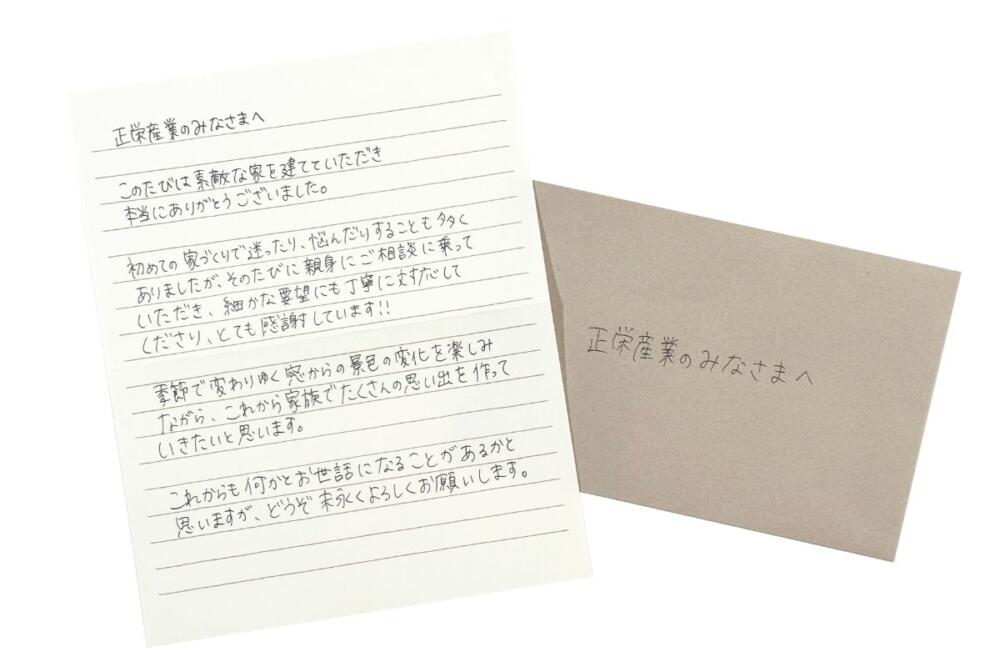 正栄産業のみなさまへ
このたびは素敵な家を建てていただき
本当にありがとうございました。
初めての家づくりで迷ったり、悩んだりすることも多く
ありましたが、そのたびに親身にご相談に乗って
いただき、細かな要望にも丁寧に対応して
くださり、とても感謝しています!!
季節で変わりゆく窓からの景色の変化を楽しみ
ながら、これから家族でたくさんの思い出を作って
いきたいと思います。
これからも何かとお世話になることがあるかと
思いますが、どうぞ末永くよろしくお願いします。
正栄産業のみなさまへ